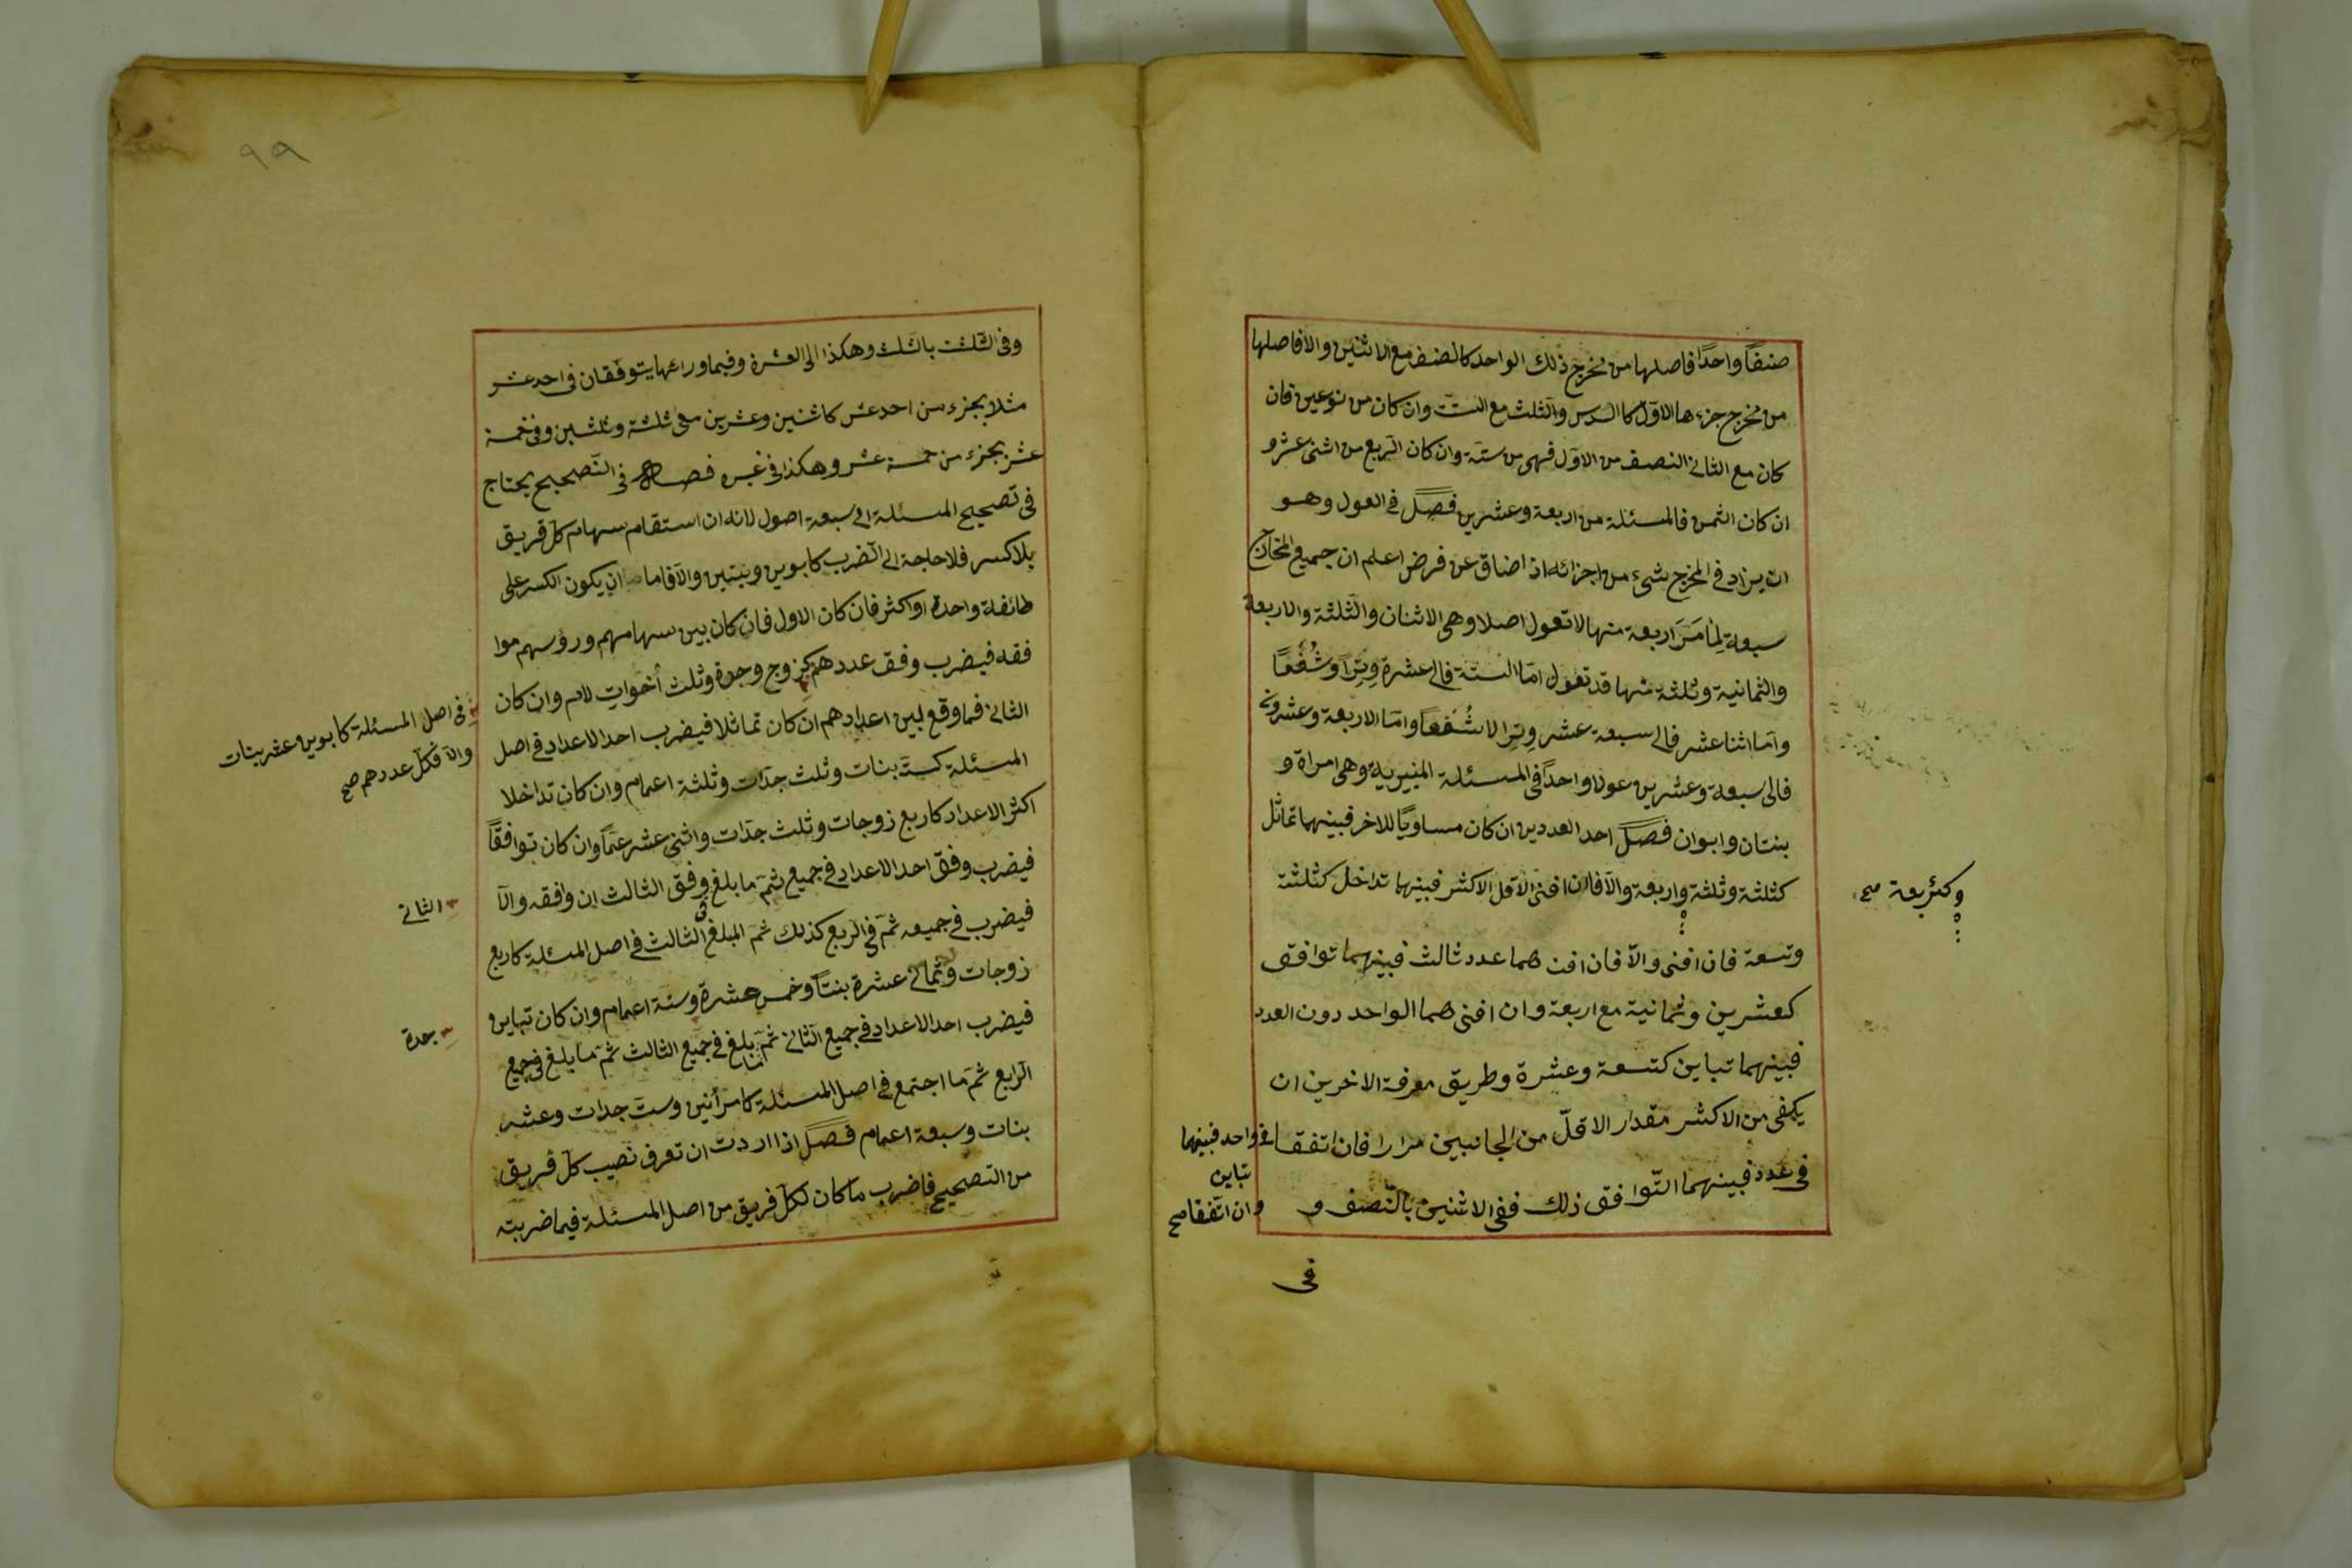 صنفاً واحدًا فاصلها من مخرج ذلك الواحد كالضعف مع الاثنين والا فاصلها
من مخرج جزءها الاوّل كالسدس والثلث مع الستّ وان كان من نوعين فان
كان مع الثانى النصف من الاوّل فهى من ستّة وان كان الربع من اثنى عشر و
ان كان الثمن فالمسئلة من اربعة وعشرين فصل فى العول وهو
ان يزاد فى المخرج شىء من اجزائه اذا ضاق عن فرض اعلم ان جميع المخارج
سبعة لِمَا مَرَّ اربعة منها لا تعول اصلا وهى الاثنان والثلثة والاربعة
والثمانية وثلثة منها قد تعول امّا الستة فالى عشرة وِتِراً وشُفُعاً
وامّا اثنا عشر فالى سبعة عشر وِتِرا لا شُفُعاً وامّا الاربعة وعشرون
فالى سبعة وعشرين عولا واحداً فى المسئلة المنبرية وهى امراة و
بنتان وابوان فصل احد العددين ان كان مساويًا للاخر فبينهما تماثل
كثلثة وثلثة واربعة والّا فان افنى الاقل الاكثر فبينهما تداخل كثلثة
وتسعة فان افنى والّا فان افنهما عدد ثالث فبينهما توافق
كعشرين وثمانية مع اربعة وان افنى هما الواحد دون العدد
فبينهما تباين كتسعة وعشرة وطريق معرفة الاخرين ان
يكفى من الاكثر مقدار الاقلّ من الجانبين مرارا فان اتفقا
فى عدد فبينهما التّوافق ذلك ففى الاثنين بالنّصف و
فى
وكثربعة صح
فى واحد فبينهما
تباين
وان اتّفقا صح
٩٩
وفى الثّلث بالثلث وهكذا الى العشرة وفيما ورائها يتوفّقان فى احد عشر
مثلا بجزء من احد عشر كاثنين وعشرين مع ثلثة وثلثين وفى خمسة
عشر بجزء من خمسة عشر وهكذا فى غيره فصل فى التّصحيح يحتاج
فى تصحيح المسئلة الى سبعة اصول لانه ان استقام سهام كلّ فريق
بلا كسر فلا حاجة الى الضرب كابوين وبنتين والّا فاما ان يكون الكسر على
طائفة واحدة او اكثر فان كان الاول فان كان بين سهامهم ورؤسهم موا
فقه فيضرب وفق عددهم كزوج وجدة وثلث أخوات لام وان كان
الثانى فما وقع لبين اعدادهم ان كان تماثلا فيضرب احد الاعداد فى اصل
المسئلة كستّ بنات وثلث جدّات وثلثة اعمام وان كان تداخلا
اكثر الاعداد كاربع زوجات وثلث جدّات واثنى عشر عمّاً وان كان توافقاً
فيضرب وفق احد الاعداد فى جميع ثمّ ما بلغ وفق الثالث ان وافقه والّا
فيضرب فى جميعه ثمّ فى الربع كذلك ثمّ المبلغ الثالث فى اصل المسئلة كاربع
زوجات وثمانى عشرة بنتاً وخمس عشرة وستة اعمام وان كان تباين
فيضرب احد الاعداد فى جميع الثّانى ثمّ ما بلغ فى جميع الثالث ثمّ ما بلغ فى جميع
الرابع ثمّ ما اجتمع فى اصل المسئلة كامرأتين وستّ جدات وعشر
بنات وسبعة اعمام فصل اذا اردت ان تعرف نصيب كلّ فريق
من التصحيح فاضرب ما كان لكلّ فريق من اصل المسئلة فيما ضربته
فى اصل المسئلة كابوين وعشر بنات
والّا فكلّ عددهم صح
الثانى
جدة